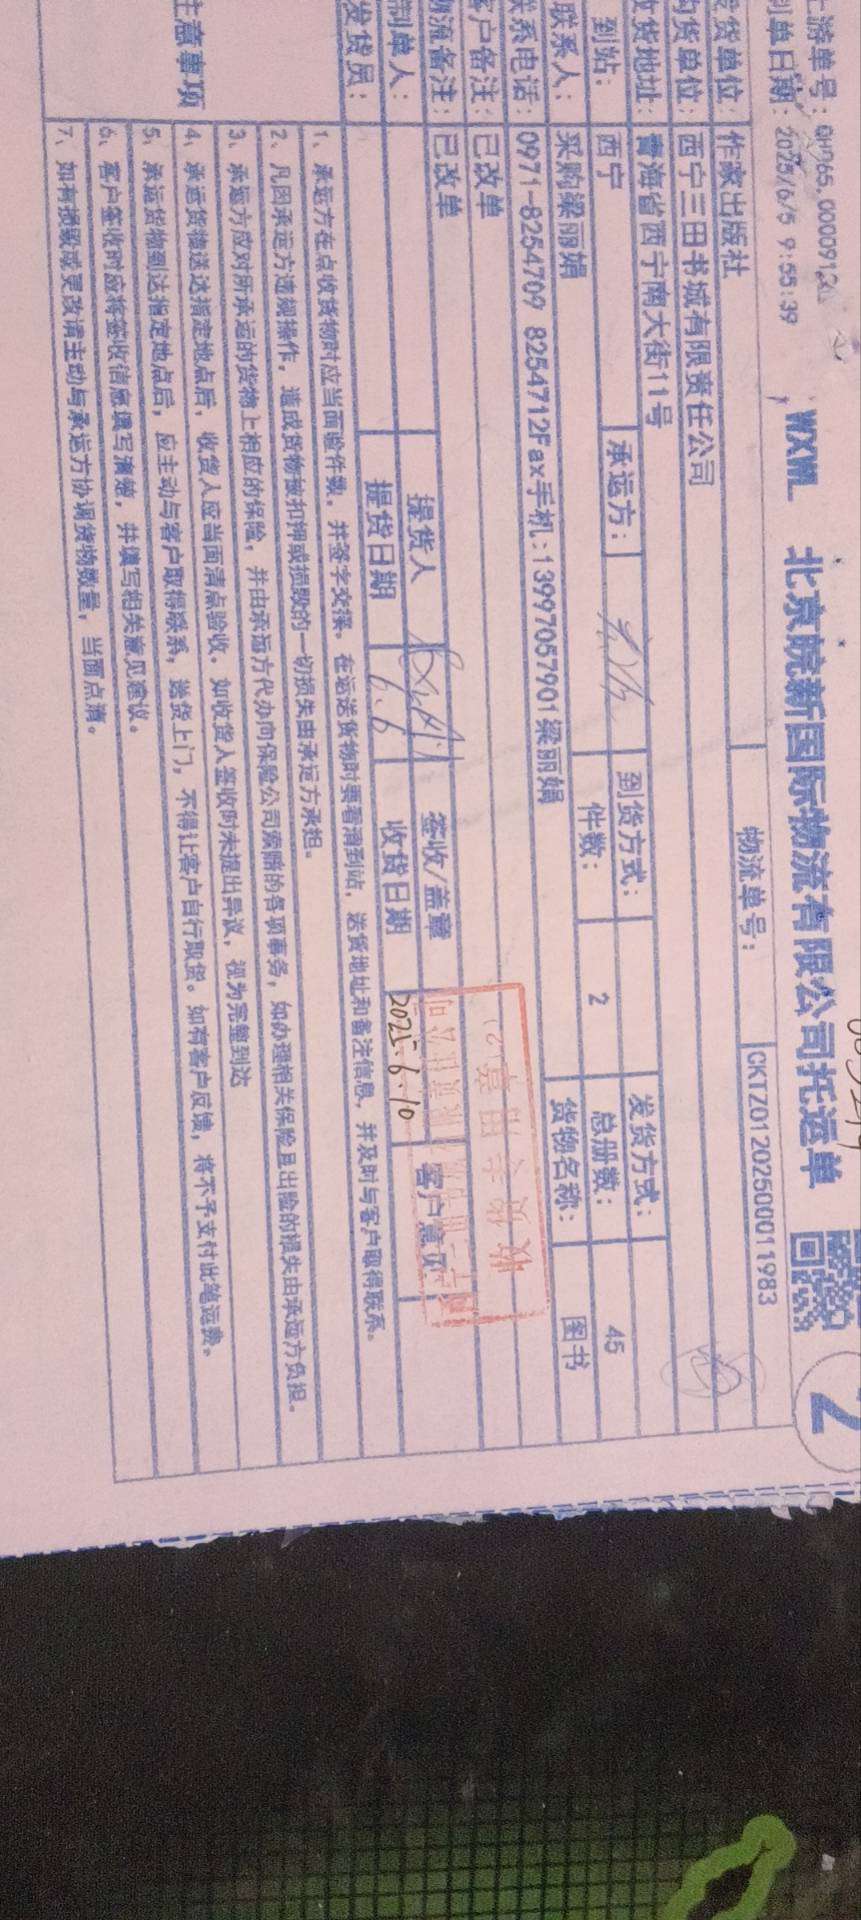 WXWL 北京皖新国际物流有限公司托运单
2
上游单号：
制单日期：2025/6/5 9:55:39
物流单号：CKTZ01202500011983
发货单位：作家出版社
购货单位：西宁三田书城有限责任公司
收货地址：青海省西宁南大街11号
到站：西宁 承运方： 到货方式： 发货方式：
件数：2 总册数：45
联系人：采购梁丽娟 货物名称：图书
联系电话：0971-8254709 8254712Fax手机:13997057901梁丽娟
客户备注：已改单
物流备注：已改单
收货专用章(2)
制单人： 提货人 签收/盖章 客户意见
发货员： 提货日期 6.6 收货日期 2025.6.10
注意事项
1、承运方在点收货物时应当面验件数，并签字交接。在运送货物时要看清到站，送货地址和备注信息，并及时与客户取得联系。
2、凡因承运方违规操作，造成货物被扣押或损毁的一切损失由承运方承担。
3、承运方应对所承运的货物上相应的保险，并由承运方代办向保险公司索赔的各项事务，如办理相关保险且出险的损失由承运方负担。
4、承运货物送达指定地点后，收货人应当面清点验收。如收货人签收时未提出异议，视为完整到达
5、承运货物到达指定地点后，应主动与客户取得联系，送货上门，不得让客户自行取货。如有客户反馈，将不予支付此笔运费。
6、客户签收时应将签收信息填写清楚，并填写相关意见建议。
7、如有损毁或更改请主动与承运方协调货物数量，当面点清。